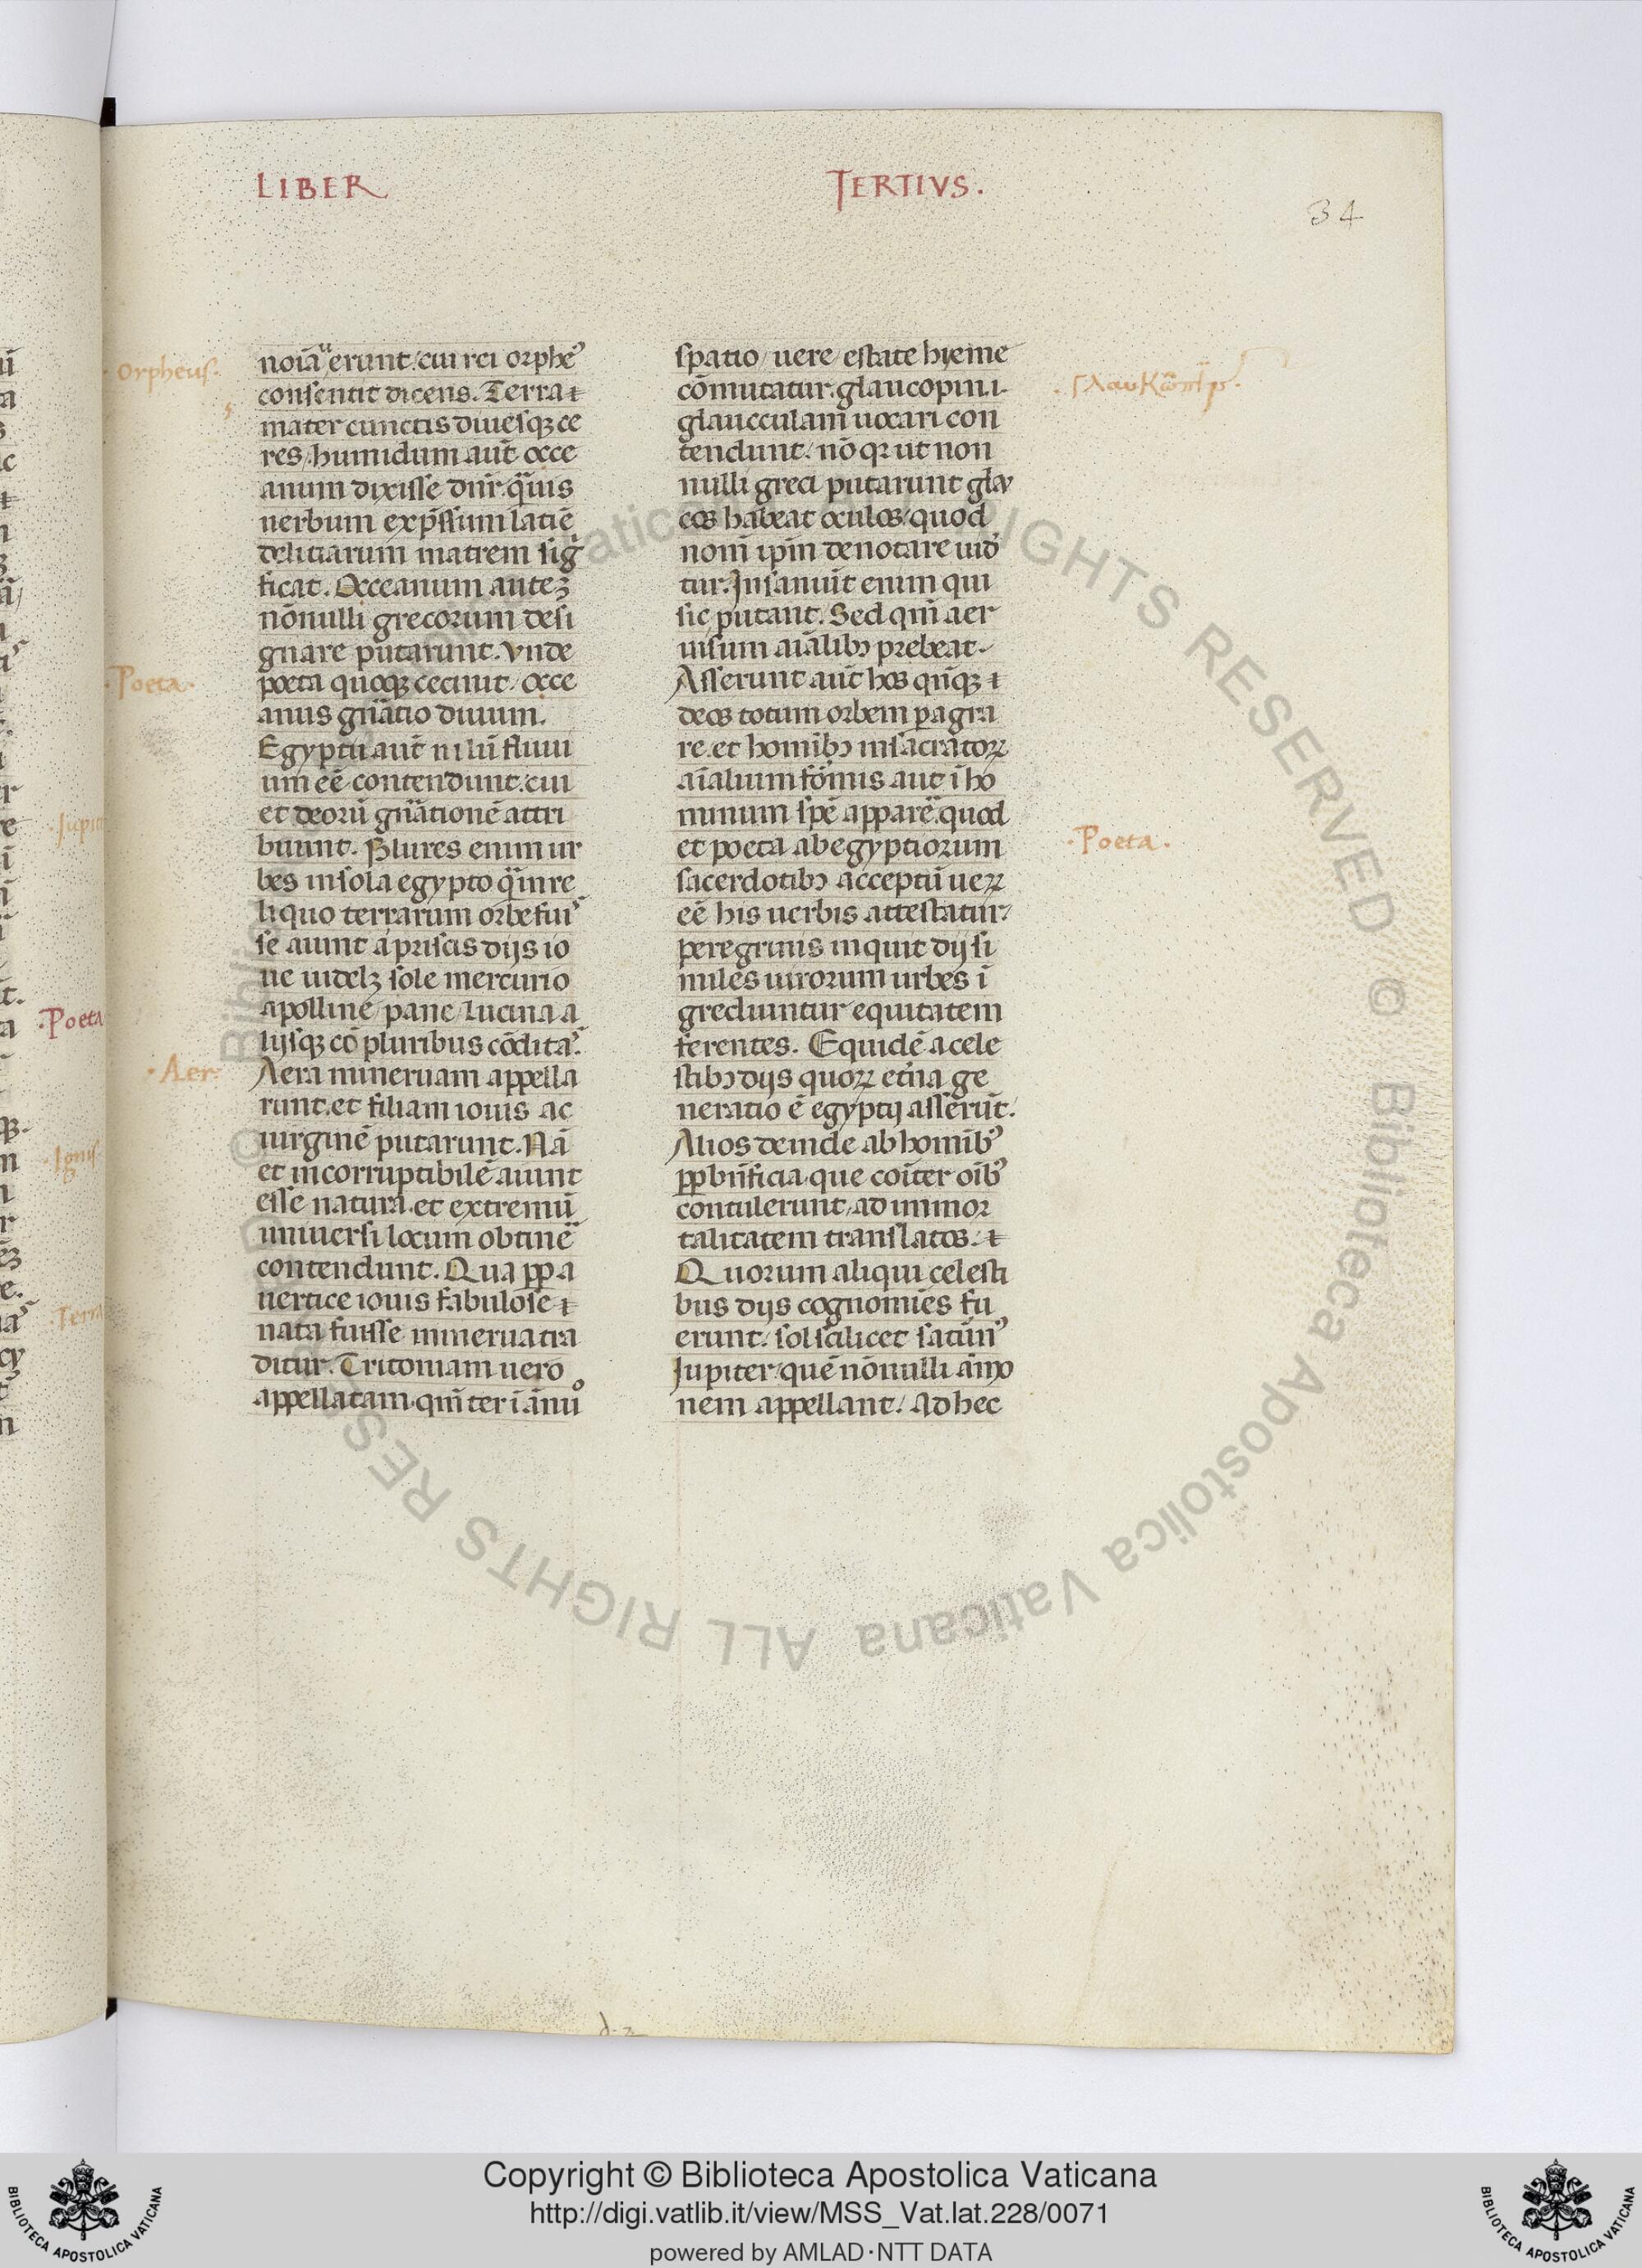 LIBER TERTIVS.
34
Orpheus.
noīaűerunt. cui rei orphe᾽
consentit dicens. Terra
mater cunctis diuesqꝫ ce
res. humidum aūt occe
anum dixisse dn̄r. qūis
uerbum exp̄ssum latiē
delitiarum matrem sig̾
ficat. Occeanum auteꝫ
nōnulli grecorum desi
gnare putarunt. Vnde
Poeta.
poeta quoqꝫ cecinit. occe
anus gn̄atio diuum.
Egyptii aūt nilū fluui
um eē contendunt. cui
et deorū gn̄ationē attri
buunt. Plures enim ur
bes in sola egypto qͣm in re
liquo terrarum orbe fui᾽
se aiunt a priscis dijs io
ue uidelꝫ sole mercurio
apolline pane lucina a
lijsqꝫ cō pluribus cōdita᾽.
Aer.
Aera mineruam appella
runt. et filiam iouis ac
uirginē putarunt. Nā
et incorruptibilē aiunt
esse naturā. et extremū
uniuersi locum obtinē
contendunt. Qua ꝓp a
uertice iouis fabulose
nata fuisse minerua tra
ditur. Tritoniam uero
appellatam. qm̄ ter ī ānuͦ
spatio uere estate hyeme
cōmutatur. glaucopin. i.
glaucculam uocari con
tendunt. nō qꝛ ut non
nulli greci putarunt glau
cos habeat oculos. quod
nom̄ ip̄m denotare uid᾽
tur. Insanuīt enim qui
sic putant. Sed qm̄ aer
uisum aīalibꝫ prebeat.
Asserunt aūt hos qn̄qꝫ
deos totum orbem ꝑagra
re. et hominībꝫ in sacratoꝝ
aīalium formis aut ī ho
minum spē apparē. quod
Poeta.
et poeta ab egyptiorum
sacerdotibꝫ acceptū ueꝝ
eē his uerbis attestatur.
peregrinis inquit dij si
miles uirorum urbes ī
grediuntur equitatem
ferentes. Equidē a cele
stibꝫ dijs quoꝝ et̄na ge
neratio ē egyptij asserūt.
Alios deinde ab homīb᾽
ꝓp bn̄ficia. que coīter oīb᾽
contulerunt. ad immor
talitatem translatos.
Quorum aliqui celesti
bus dijs cognomies fu
erunt. sol scilicet satūn᾽
Jupiter. quē nōnulli āmo
nem appellant. Ad hec
Copyright © Biblioteca Apostolica Vaticana
http://digi.vatlib.it/view/MSS_Vat.lat.228/0071
powered by AMLAD·NTT DATA
BIBLIOTECA APOSTOLICA VATICANA
BIBLIOTECA APOSTOLICA VATICANA